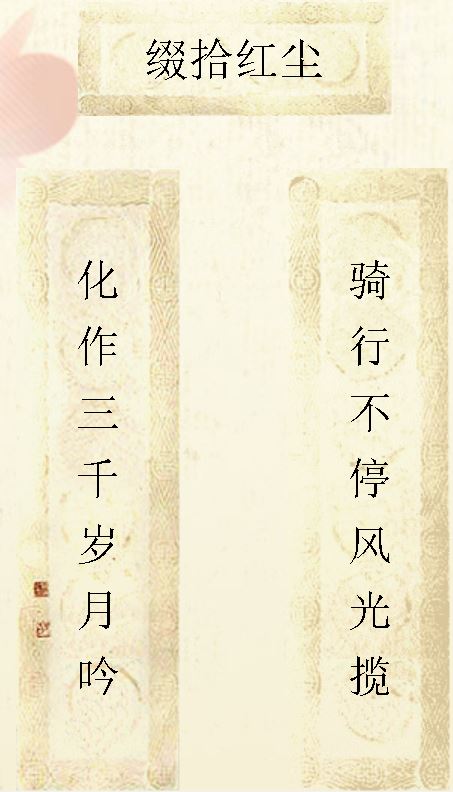 缀拾红尘
骑行不停风光揽
化作三千岁月吟